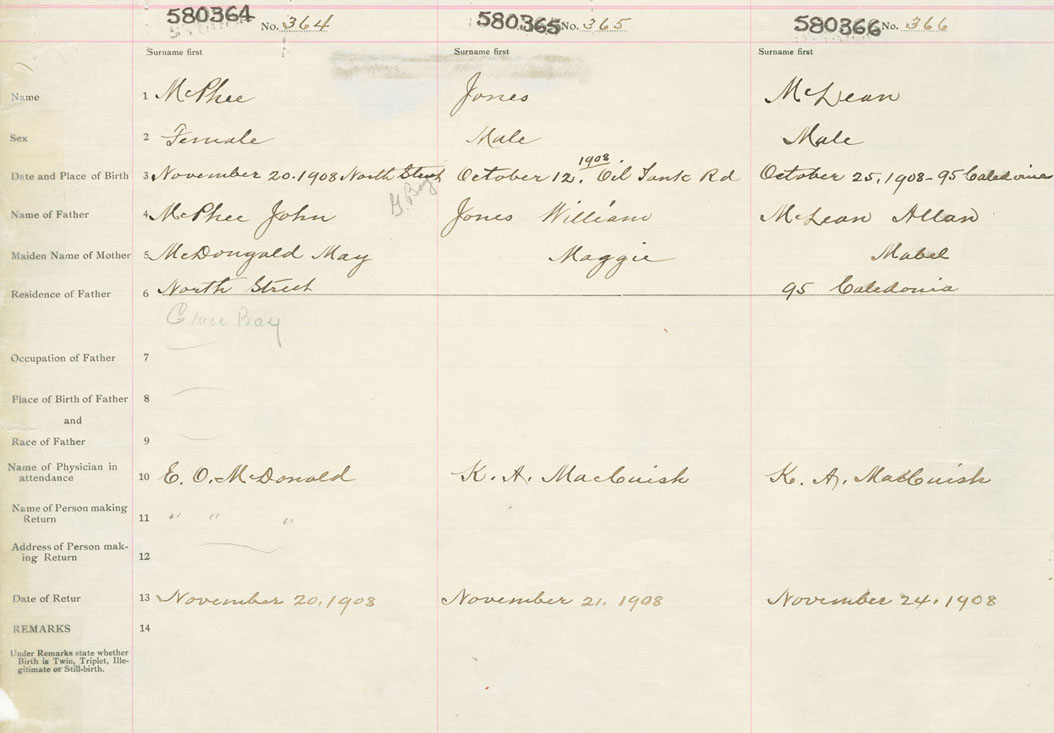 580364 No. 364 580365 No. 365 580366 No. 366
Surname first Surname first Surname first
Name 1 McPhee Jones McLean
Sex 2 Female Male Male
1908
Date and Place of Birth 3 November 20. 1908 North Street October 12. Oil Tank Rd October 25, 1908 - 95 Caledonia
G. Bay
Name of Father 4 McPhee John Jones William McLean Allan
Maiden Name of Mother 5 McDougald May Maggie Mabel
Residence of Father 6 North Street 95 Caledonia
Glace Bay
Occupation of Father 7
Place of Birth of Father 8
and
Race of Father 9
Name of Physician in
attendance 10 E. O. McDonald K. A. MacCuish K. A. MacCuish
Name of Person making
Return 11 " " "
Address of Person mak-
ing Return 12
Date of Retur 13 November 20, 1908 November 21. 1908 November 24. 1908
REMARKS 14
Under Remarks state whether
Birth is Twin, Triplet, Ille-
gitimate or Still-birth.